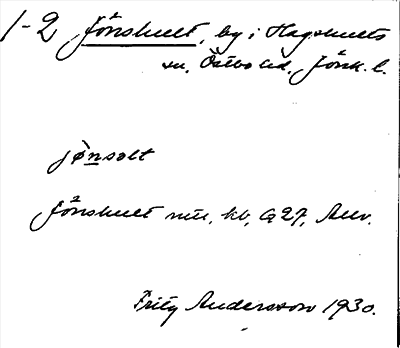 1-2 Jönshult, by i Hagshults
sn, Östbo hd, Jönk. l.
jönsolt
Jönshult
Fritz Andersson 1930.